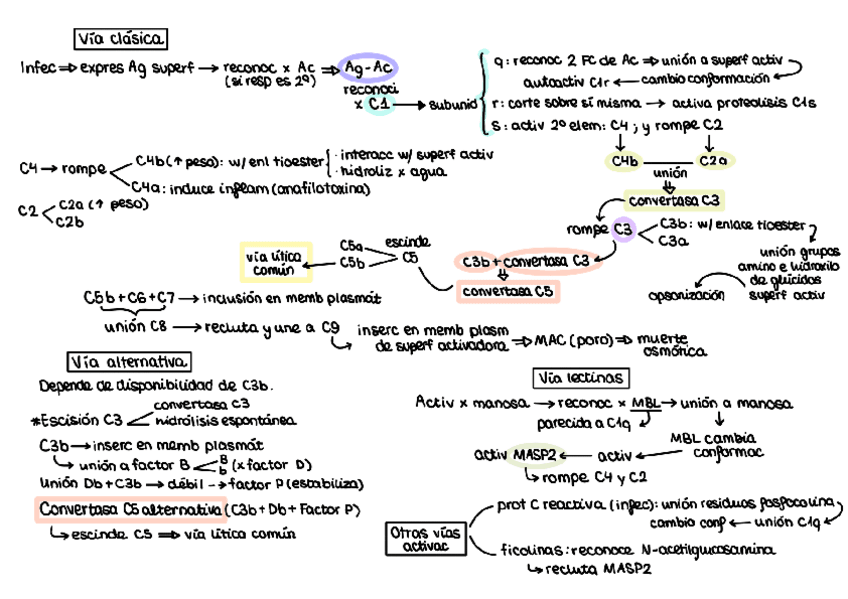 Vía clásica
Infec ⇒ expres Ag superf → reconoc x Ac ⇒ Ag-Ac
(si resp es 2ª)
reconoci
x C1 → subunid
q: reconoc 2 FC de Ac ⇒ unión a superf activ
autoactiv C1r ← cambio conformación
r: corte sobre sí misma → activa proteolisis C1s
s: activ 2º elem: C4; y rompe C2
C4b — C2a
unión
convertasa C3
C4 → rompe
C4b (↑ peso): w/ enl tioester
· interacc w/ superf activ
· hidroliz x agua
C4a: induce inflam (anafilotoxina)
C2
C2a (↑ peso)
C2b
rompe C3
C3b: w/ enlace tioester
C3a
unión grupos
amino e hidroxilo
de glúcidos
superf activ
opsonización
C3b + convertasa C3
convertasa C5
escinde
C5
C5a
C5b
vía lítica
común
C5b + C6 + C7 → inclusión en memb plasmát
unión C8 → recluta y une a C9
inserc en memb plasm
de superf activadora ⇒ MAC (poro) ⇒ muerte
osmótica
Vía alternativa
Depende de disponibilidad de C3b.
*Escisión C3
convertasa C3
hidrólisis espontánea
C3b → inserc en memb plasmát
↳ unión a factor B
B
b
(x factor D)
Unión Db + C3b → débil → factor P (estabiliza)
Convertasa C5 alternativa (C3b + Db + Factor P)
↳ escinde C5 ⇒ vía lítica común
Vía lectinas
Activ x manosa → reconoc x MBL → unión a manosa
parecida a C1q
MBL cambia
conformac
activ MASP2 ← activ
↳ rompe C4 y C2
Otras vías
activac
prot C reactiva (infec): unión residuos fosfocolina
cambio conf ← unión C1q
ficolinas: reconoce N-acetilglucosamina
↳ recluta MASP2